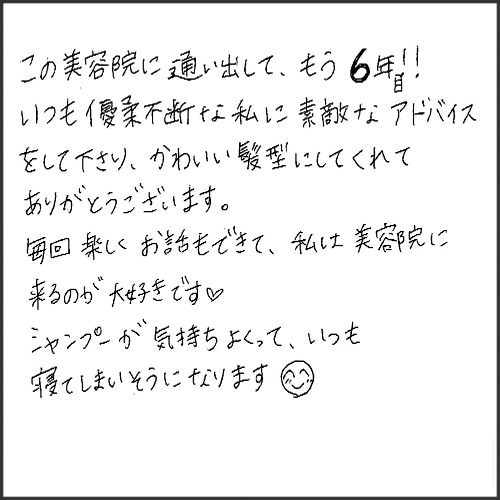 この美容院に通い出して、もう6年目!!
いつも優柔不断な私に素敵なアドバイス
をして下さり、かわいい髪型にしてくれて
ありがとうございます。
毎回楽しくお話もできて、私は美容院に
来るのが大好きです♡
シャンプーが気持ちよくって、いつも
寝てしまいそうになります